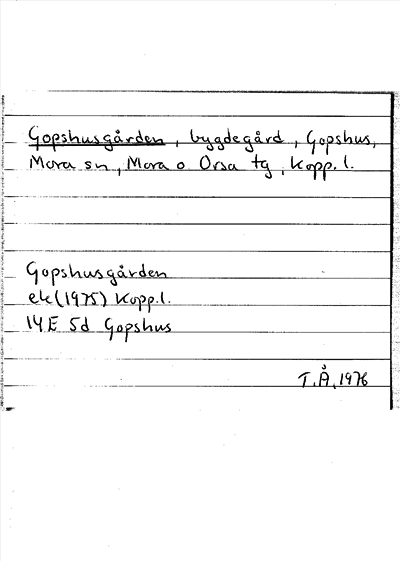 Gopshusgården, bygdegård, Gopshus,
Mora sn, Mora o Orsa tg, Kopp. l.
Gopshusgården
ek (1975) Kopp. l.
14E 5d Gopshus
T. Å. 1976